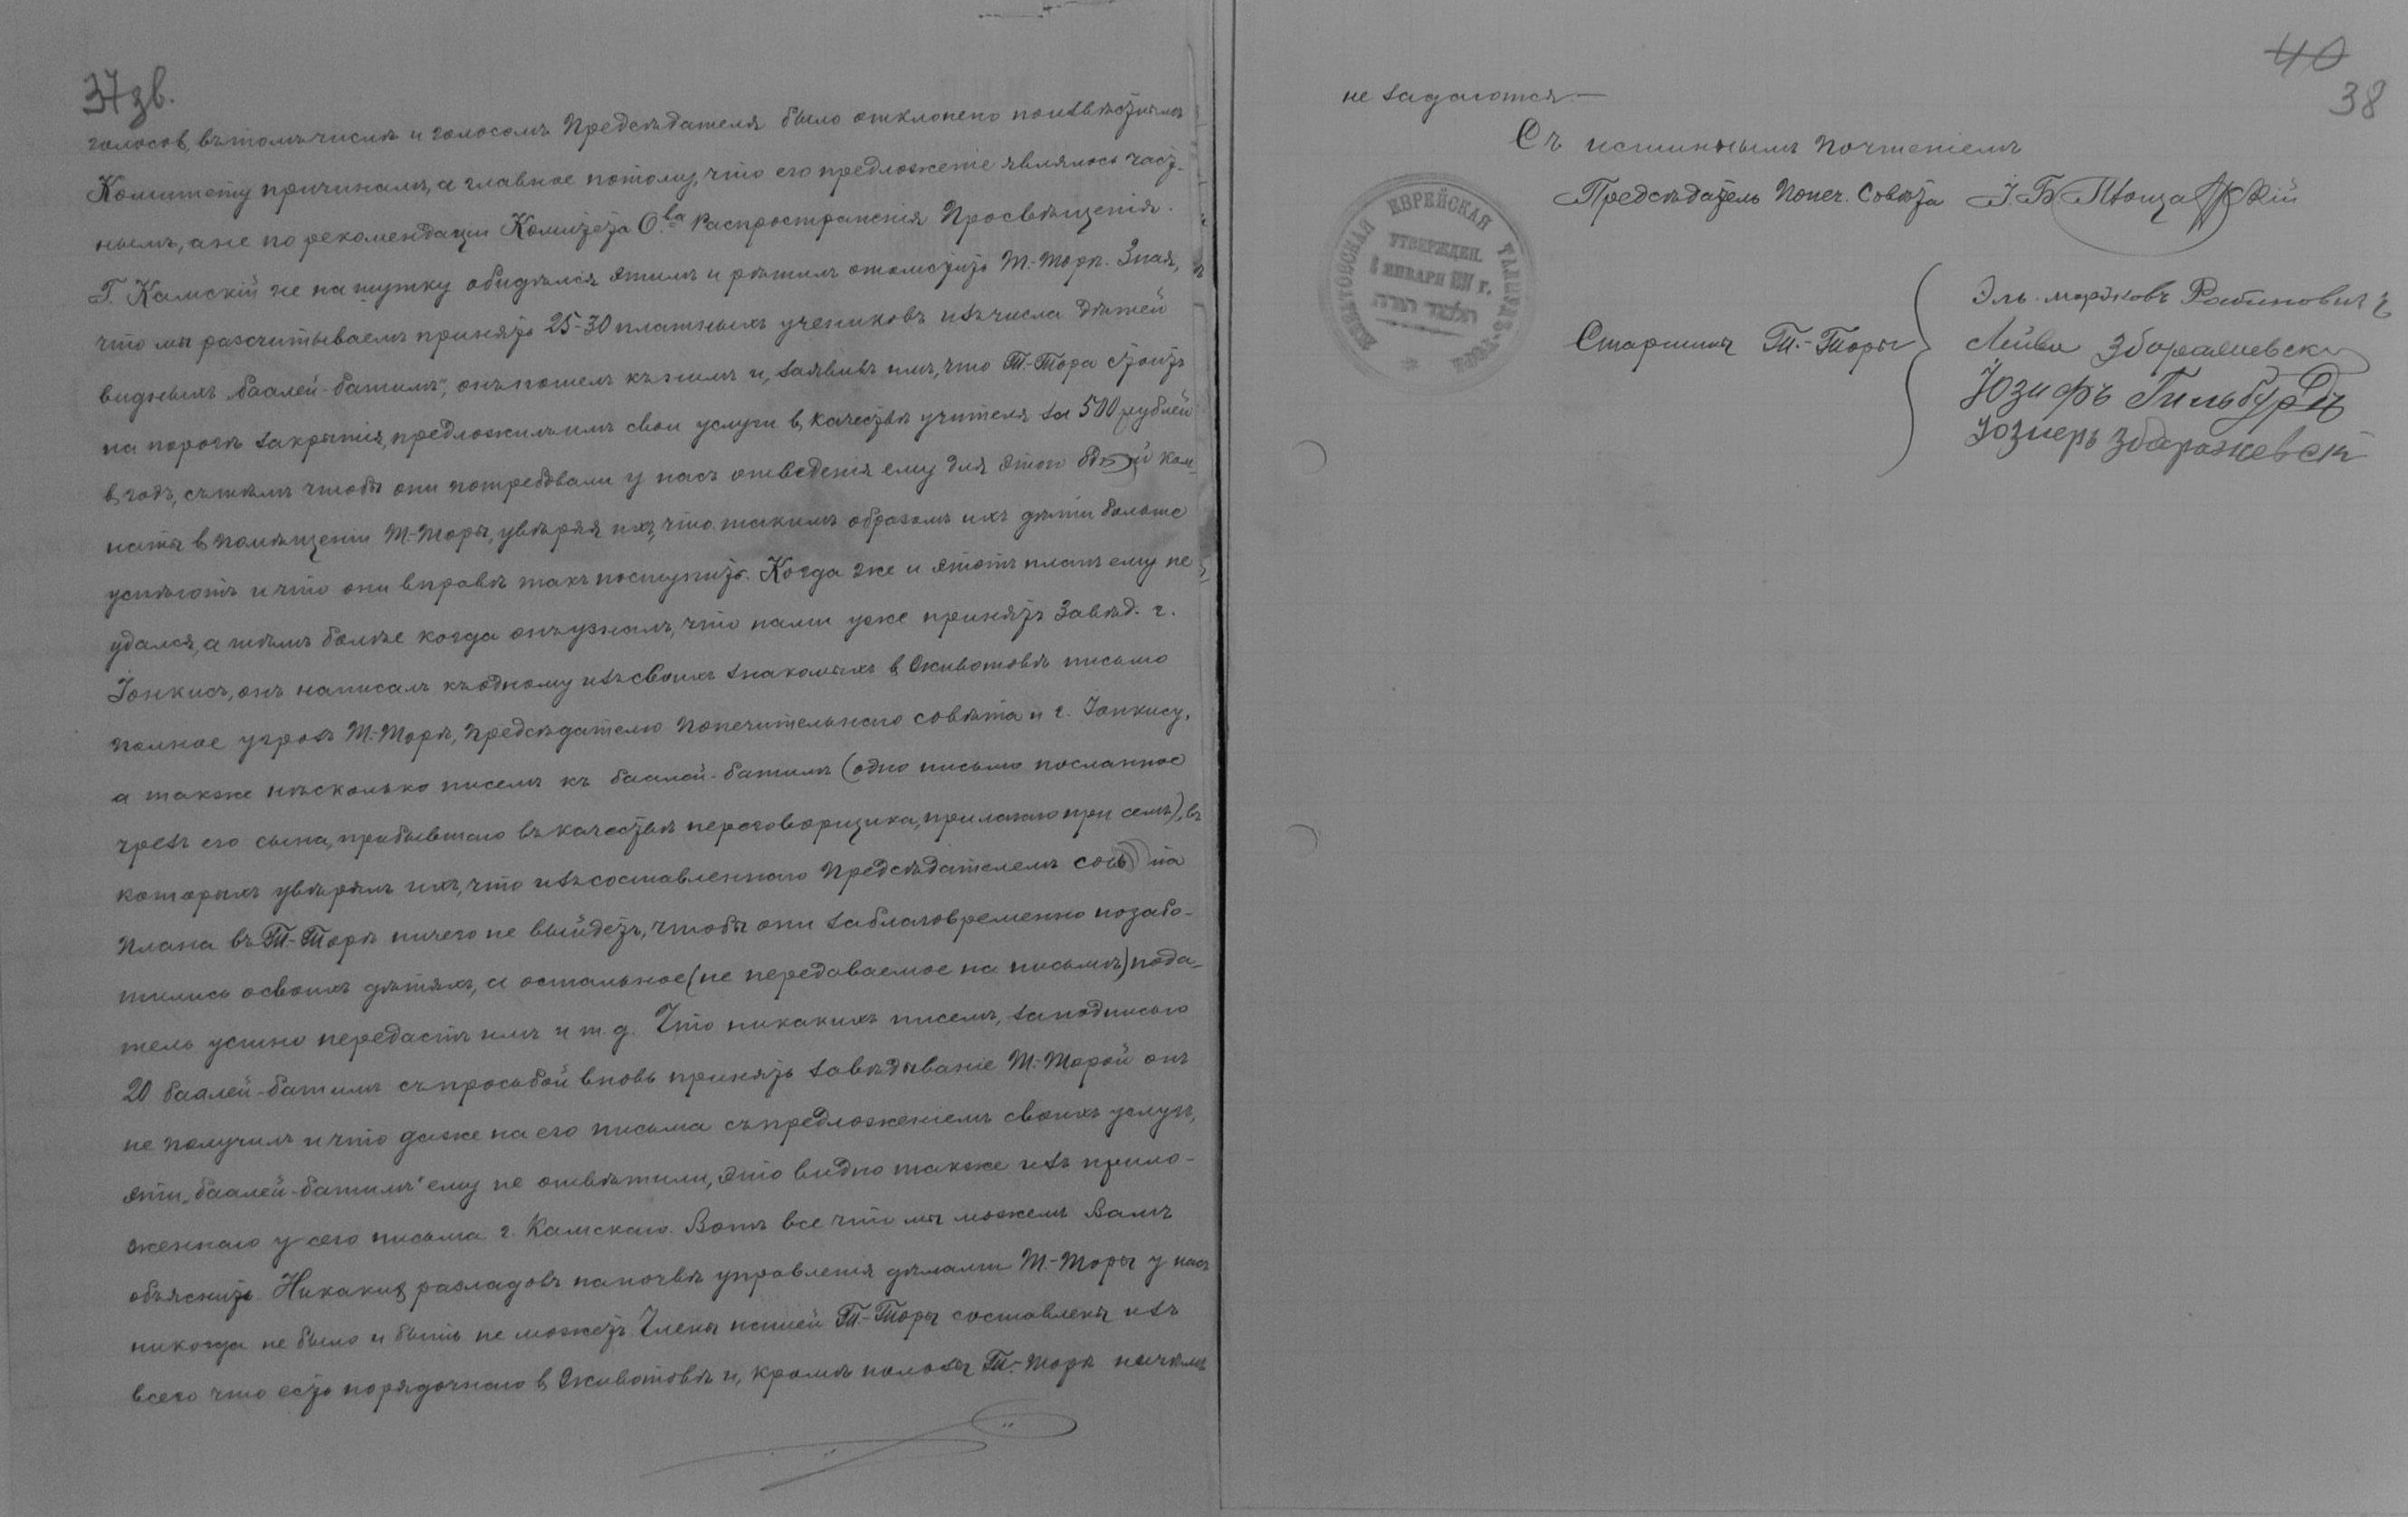 37 зв.
голосов, въ томъ числѣ и голосомъ Предсѣдателя было отклонено по извѣстнымъ
Комитету причинамъ, а главное потому, что его предложеніе являлось част-
нымъ, а не по рекомендаціи Комитета О.ва Распространенія Просвѣщенія.
Г. Камскій не на шутку обидѣлся этимъ и рѣшилъ отомстить Т.-Торѣ. Зная,
что мы разсчитываемъ принять 25-30 платныхъ учениковъ изъ числа дѣтей
видныхъ „баалей-батимъ", онъ пошелъ къ нимъ и, заявивъ имъ, что Т.-Тора стоитъ
на порогѣ закрытія, предложилъ имъ свои услуги в качествѣ учителя за 500 рублей
в годъ, съ тѣмъ чтобы они потребовали у насъ отведенія ему для этого одной ком-
наты в помѣщеніи Т.-Торы, увѣряя ихъ, что такимъ образомъ ихъ дѣти больше
успѣютъ и что они вправѣ такъ поступить. Когда же и этотъ планъ ему не
удался, а тѣмъ болѣе когда онъ узналъ, что нами уже принятъ Завѣд. г.
Іонкисъ, онъ написалъ къ одному изъ своихъ знакомыхъ в Животовѣ письмо
полное угрозъ Т.-Торѣ, Предсѣдателю Попечительнаго совѣта и г. Іонкису,
а также нѣсколько писемъ къ баалей-батимъ (одно письмо посланное
чрезъ его сына, прибывшаго въ качествѣ переговорщика, прилагаю при семъ), въ
которыхъ увѣрялъ ихъ, что изъ составленнаго Предсѣдателемъ совѣта
плана въ Т.-Торѣ ничего не выйдетъ, чтобы они заблаговременно позабо-
тились о своихъ дѣтяхъ, а остальное (не передаваемое на письмѣ) пода-
тель устно передастъ имъ и т. д. Что никакихъ писемъ, за подписью
20 баалей-батимъ съ просьбой вновь принять завѣдываніе Т.-Торой онъ
не получилъ и что даже на его письма съ предложеніемъ своихъ услугъ,
эти „баалей-батимъ" ему не отвѣтили, это видно также изъ прило-
женнаго у сего письма г. Камскаго. Вотъ все что мы можемъ Вамъ
объяснить. Никакихъ разладовъ на почвѣ управленія дѣлами Т.-Торы у насъ
никогда не было и быть не можетъ. Члены нашей Т.-Торы составлены изъ
всего что есть порядочнаго в Животовѣ и, кромѣ пользы Т.-Торѣ ничѣмъ
40
38
не задаются.—
Съ истиннымъ почтеніемъ
Предсѣдатель Попеч. Совѣта І. Б.
ЖИВОТОВСКАЯ ЕВРЕЙСКАЯ ТАЛМУДЪ-ТОРА
УТВЕРЖДЕН.
ЯНВАРЯ г.
תלמוד תורה
Старшины Т.-Торы
Эль Рабиновичъ
Лейба Збаражевски
Юзифъ Гильбурдъ
Збаражевскій